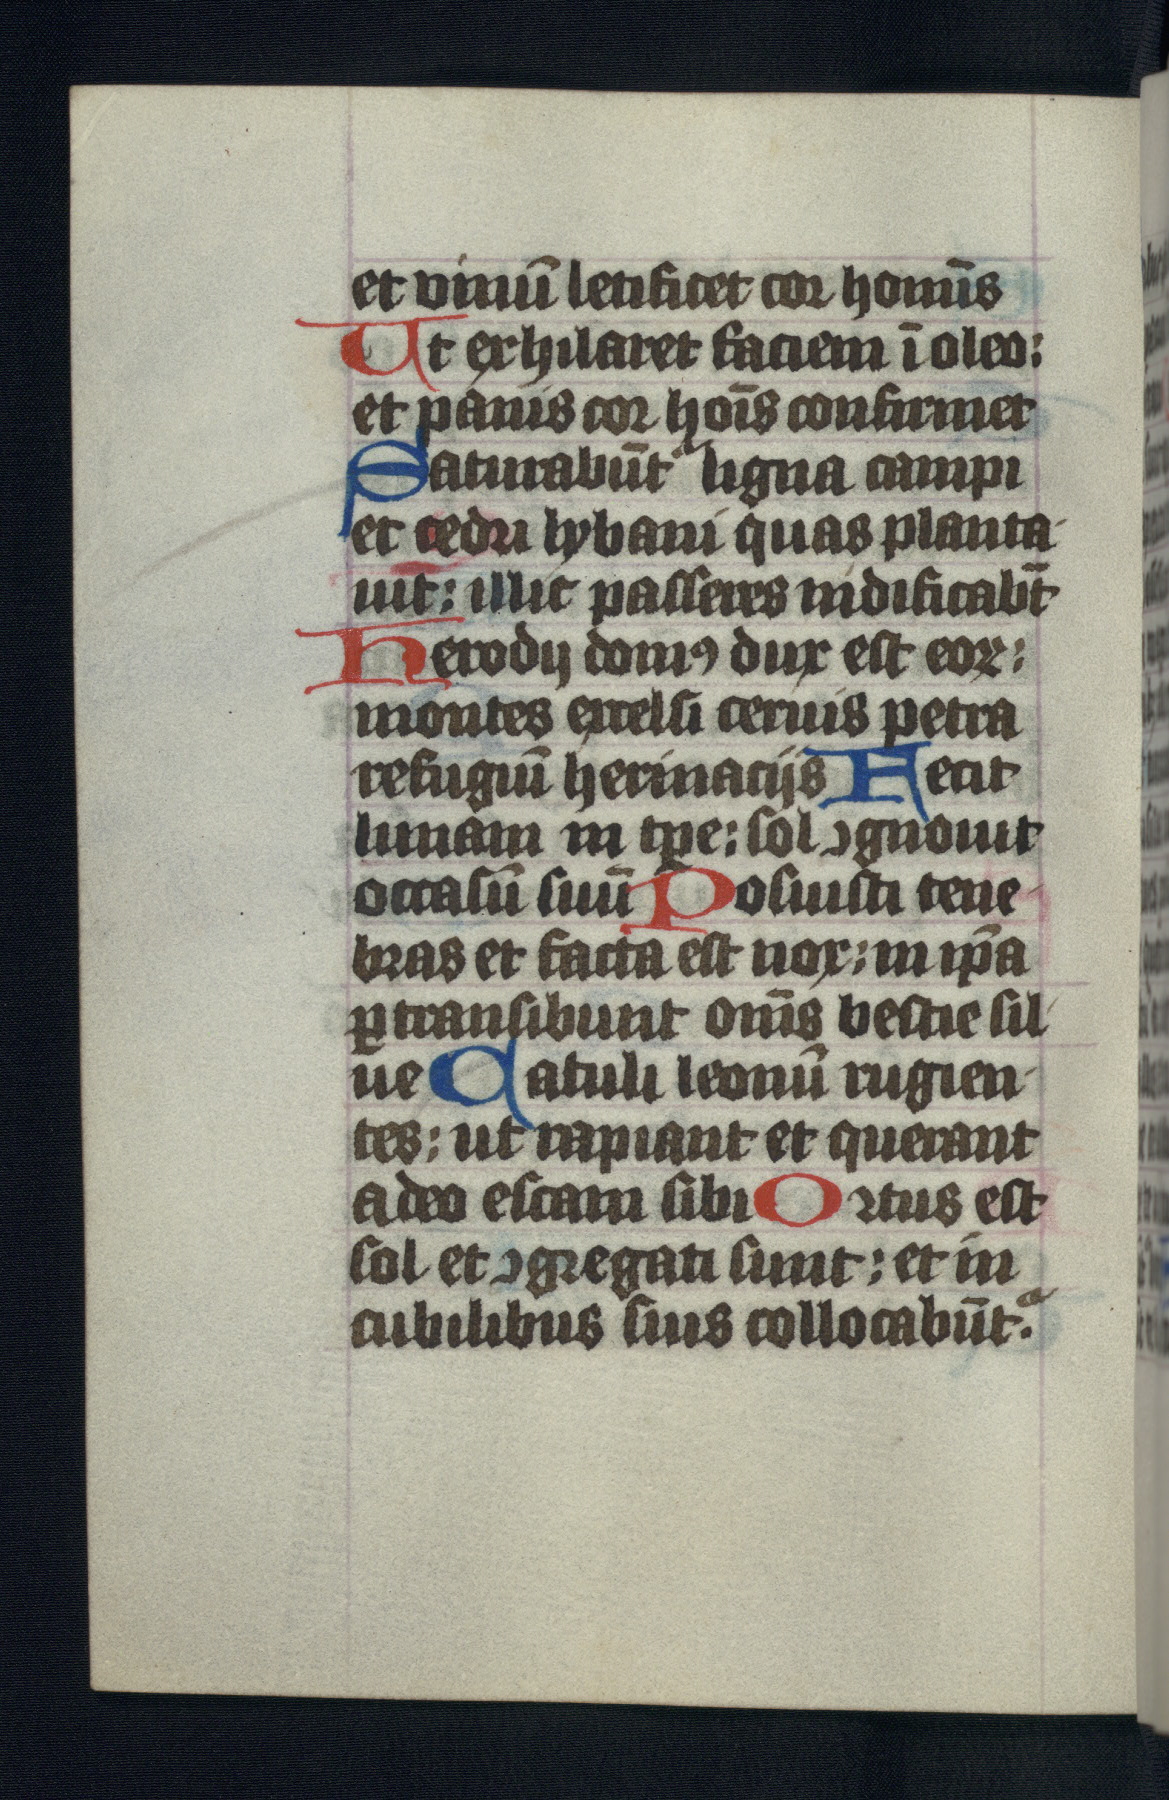 et vinū letificet cor homīs
Ut exhilaret faciem ī oleo:
et panis cor hoīs confirmet
Saturabūtᷓ ligna campi
et cedri lybani quas planta-
uit̄: illic passeres nidificabt̄
Herodij domꝰ dux est eoꝝ:
montes excelsi ceruis petra
refugiū herinacijs Fecit
lunam in tp̄e: sol ꝯgnouit
occasū suū Posuisti tene-
bras et facta est nox: in ip̄a
ꝑtransibunt om̄s bestie sil-
ue Catuli leonū rugien-
tes: ut rapiant et querant
a deo escam sibi Ortus est
sol et ꝯgregati sunt: et in
cubilibus suis collocabūtᷓ.